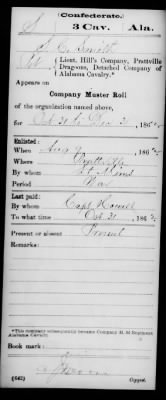 Confederate.
S 3 Cav. Ala.
Smith
Lieut. Hill's Company, Prattville
Dragoons, Detached Company of
Alabama Cavalry.*
Appears on
Company Muster Roll
of the organization named above,
for Oct 31 to Dec 31, 186
Enlisted:
When Aug 186
Where Prattville
By whom Lt Mims
Period War
Last paid:
By whom Capt Howell
To what time Oct 31, 186
Present or absent Present
Remarks:
*This company subsequently became Company H, 3d Regiment
Alabama Cavalry.
Book mark:
(642) Copyist.